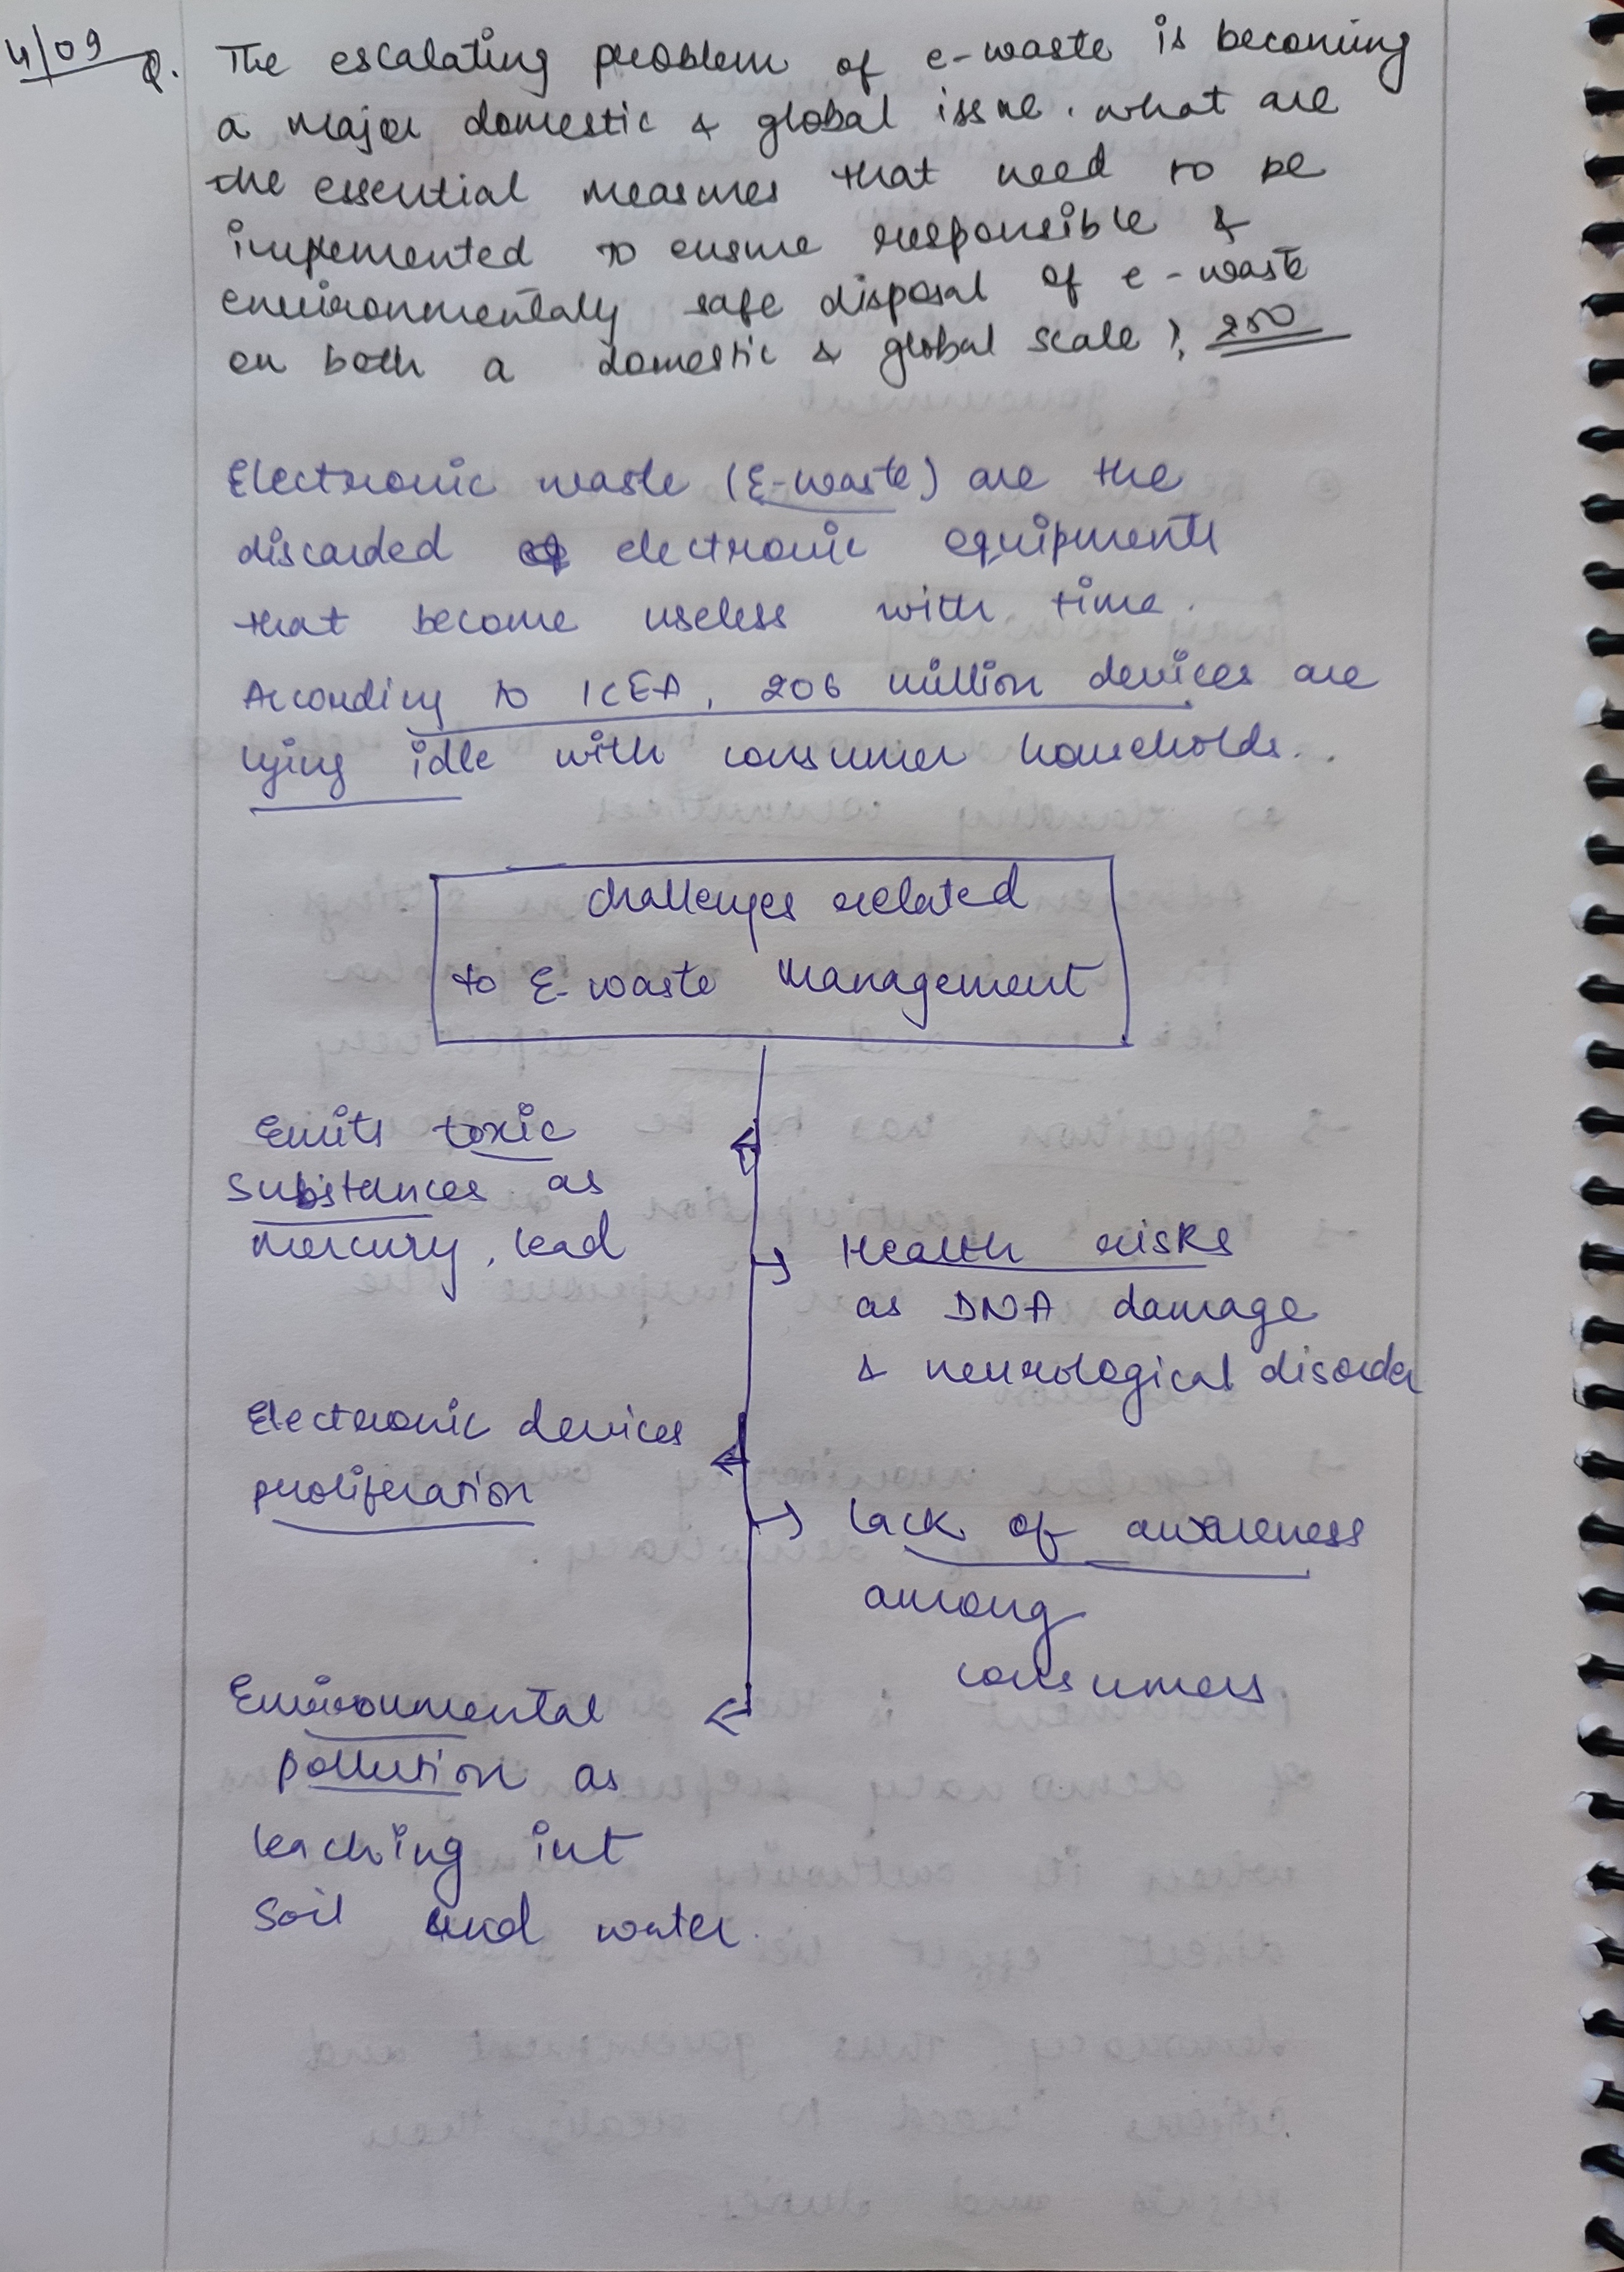 4/09
Q. The escalating problem of e-waste is becoming
a major domestic & global issue. what are
the essential measures that need to be
impemented to ensure responsible &
environmentaly safe disposal of e-waste
on both a domestic & global scale ?. 250
Electronic waste (E-waste) are the
discarded electronic equipments
that become useless with time.
According to ICEA, 206 million devices are
lying idle with consumer households..
Challenges related
to E-waste Management
Emits toxic
substances as
mercury, lead
Health risks
as DNA damage
& neurological disorder
Electronic devices
proliferation
Lack of awareness
among
consumers
Environmental
pollution as
leaching int
soil and water.